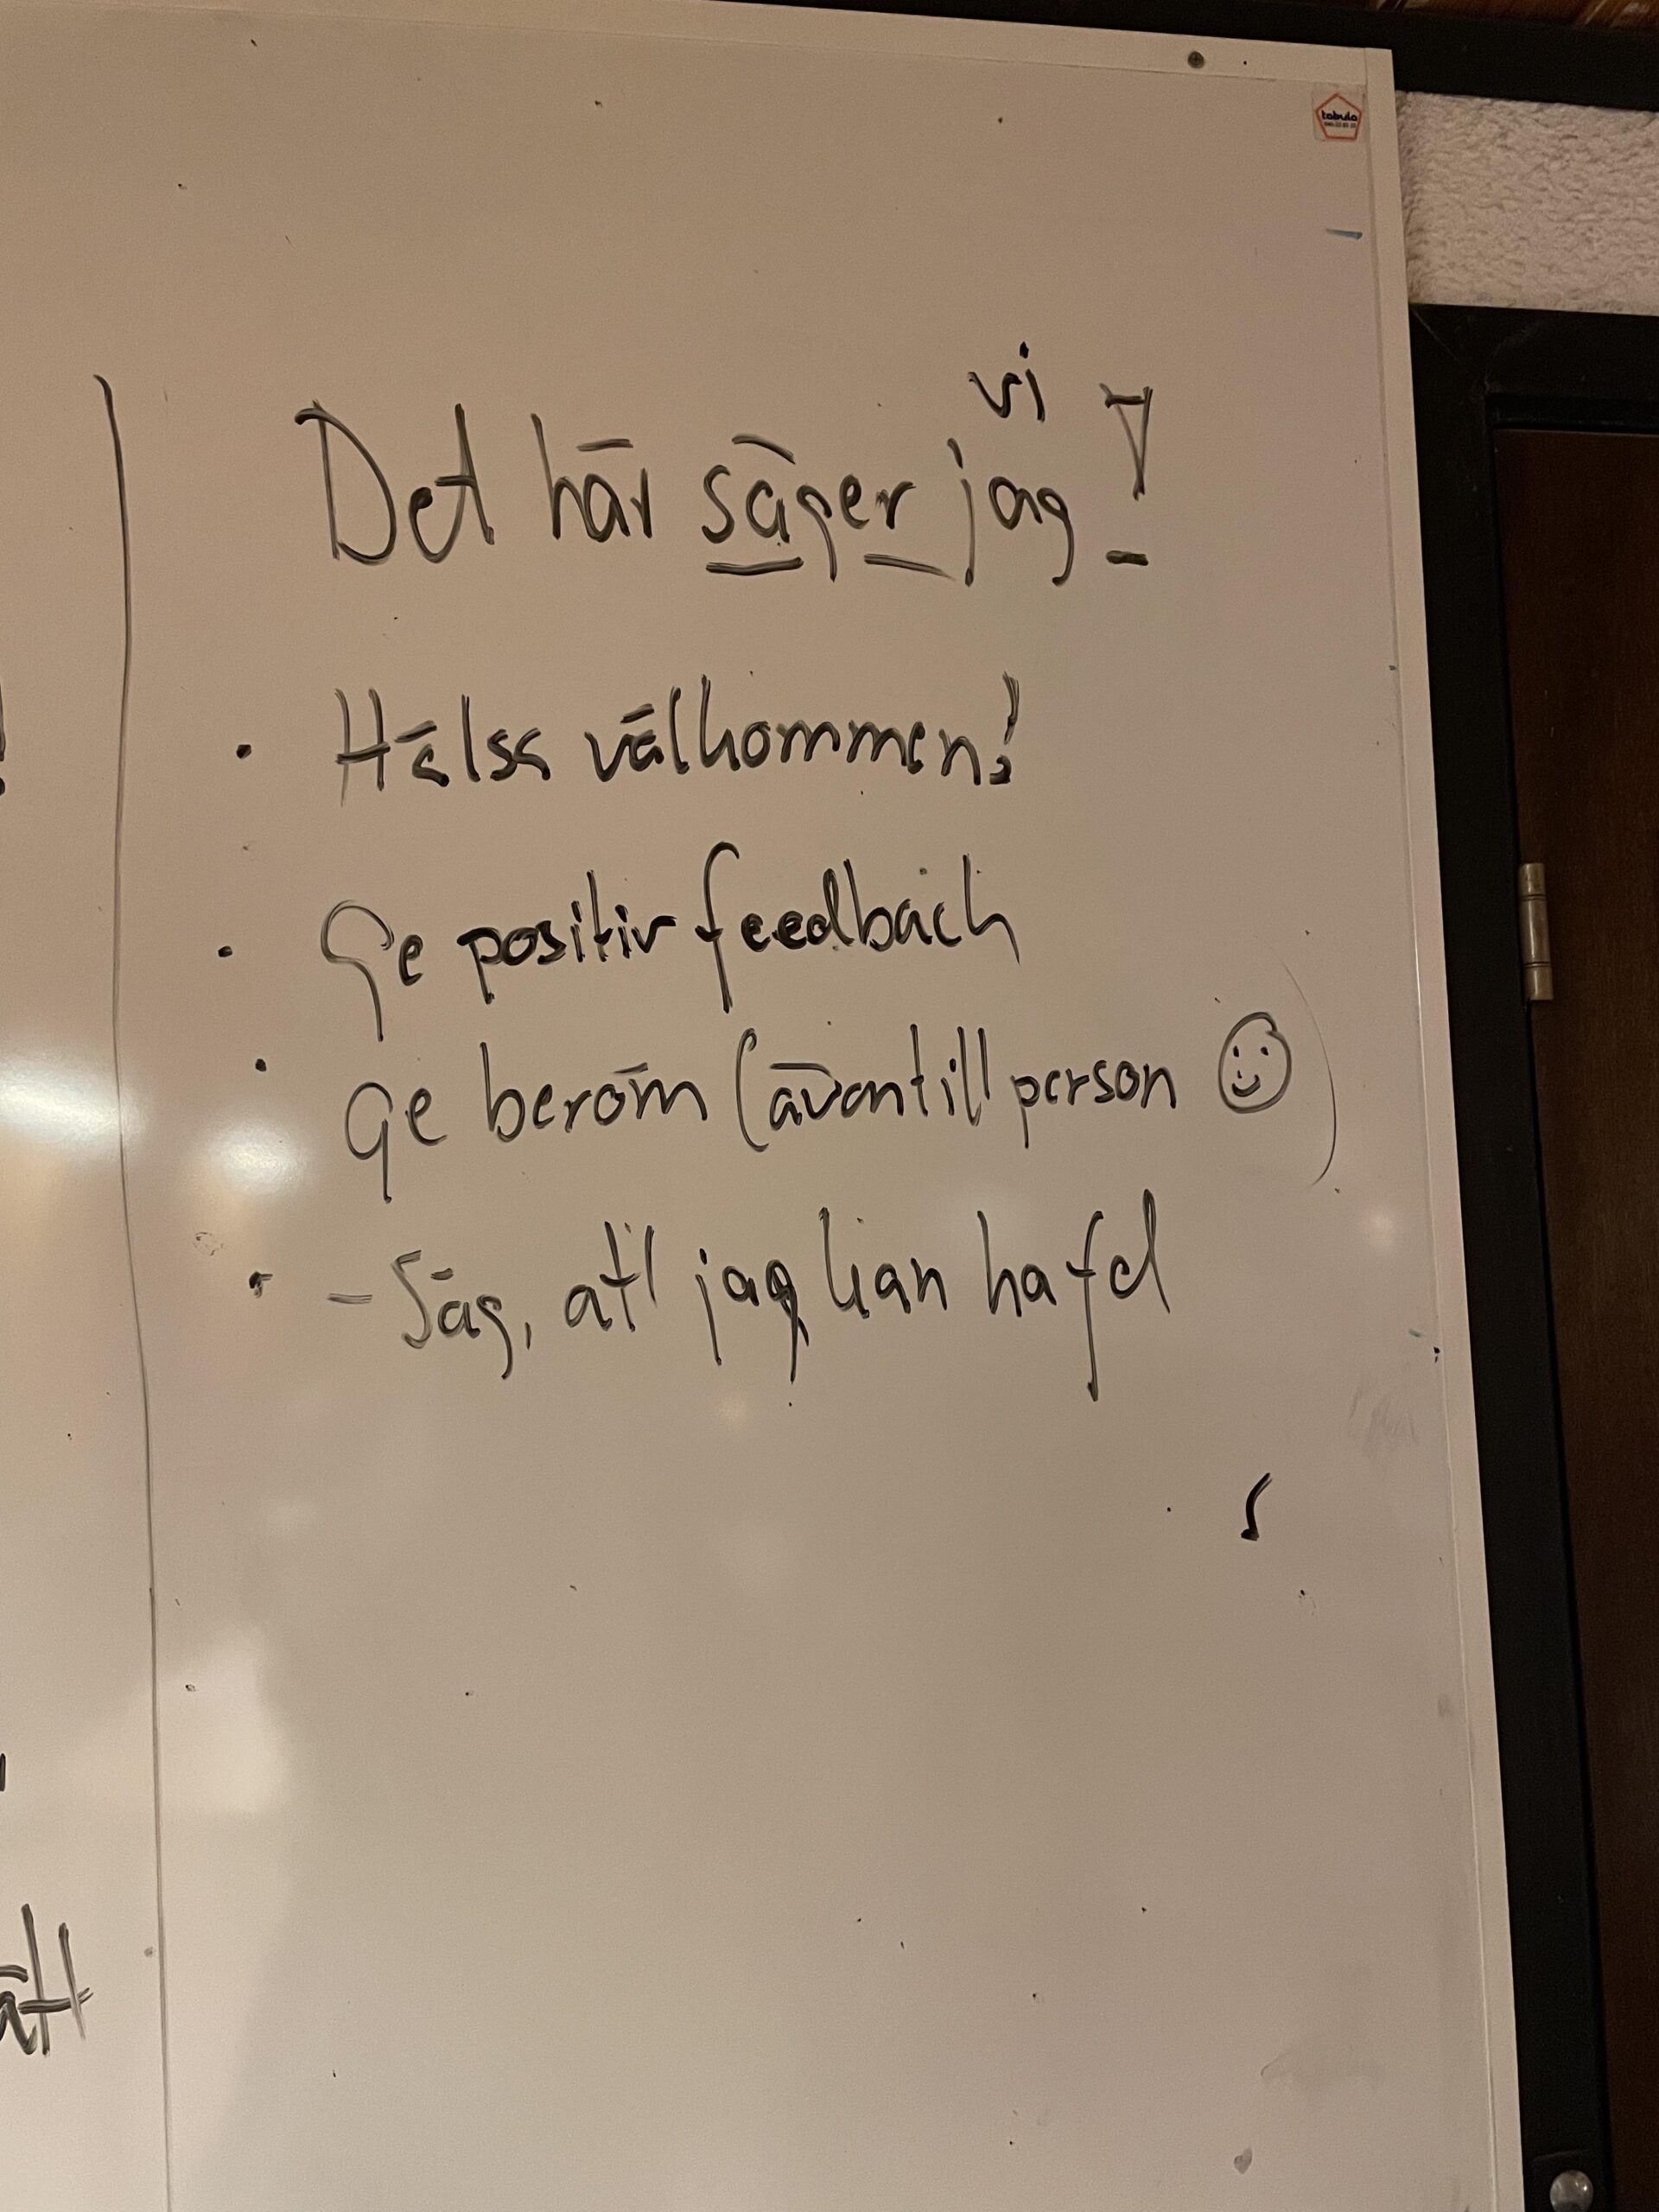 tabula
vi
Det här säger jag!
• Hälsa välkommen!
• Ge positiv feedback
• Ge beröm (även till person ☺)
• - Säg, att jag kan ha fel
ätt